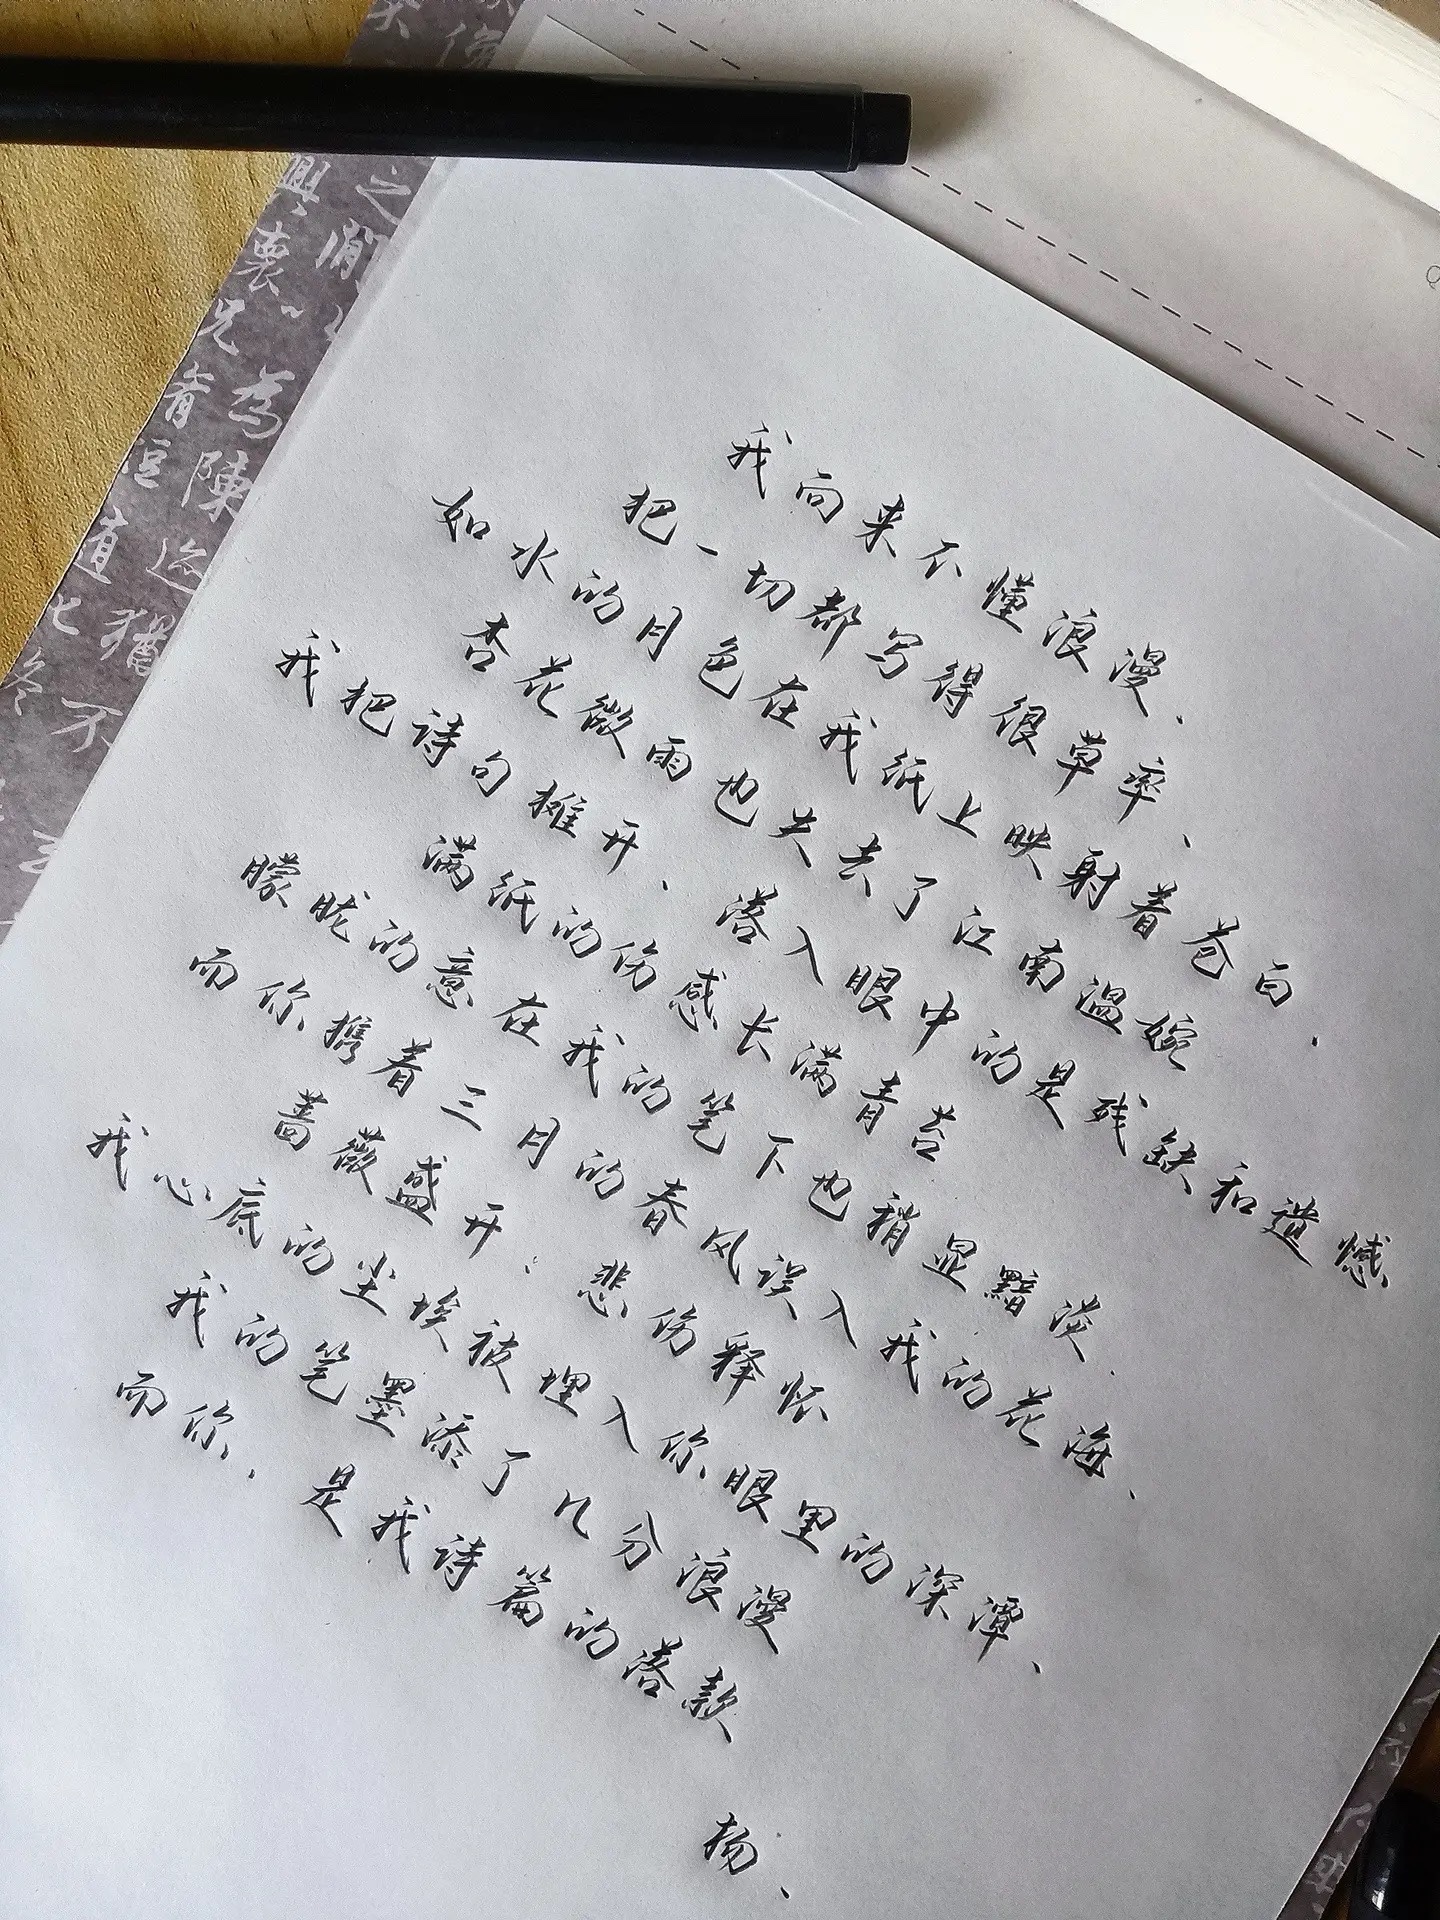 我向来不懂浪漫、
把一切都写得很草率、
如水的月色在我纸上映射着苍白.
杏花微雨也失去了江南温婉
我把诗句摊开、落入眼中的是残缺和遗憾
满纸的伤感长满青苔
朦胧的意在我的笔下也稍显黯淡.
而你携着三月的春风误入我的花海、
蔷薇盛开、悲伤释怀
我心底的尘埃被埋入你眼里的深潭、
我的笔墨添了几分浪漫
而你、是我诗篇的落款
杨、
之
興
為
陳
迹
猶
不